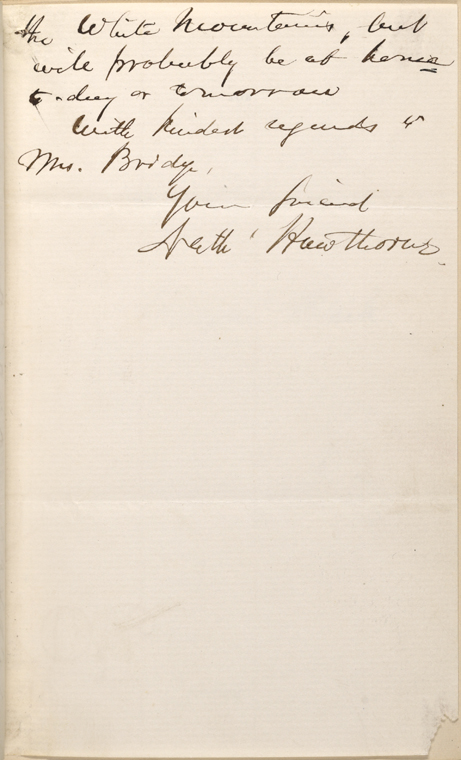 the White Mountains, but
will probably be at home
to-day or tomorrow
With kindest regards to
Mrs. Bridge,
Your friend
Nath' Hawthorne